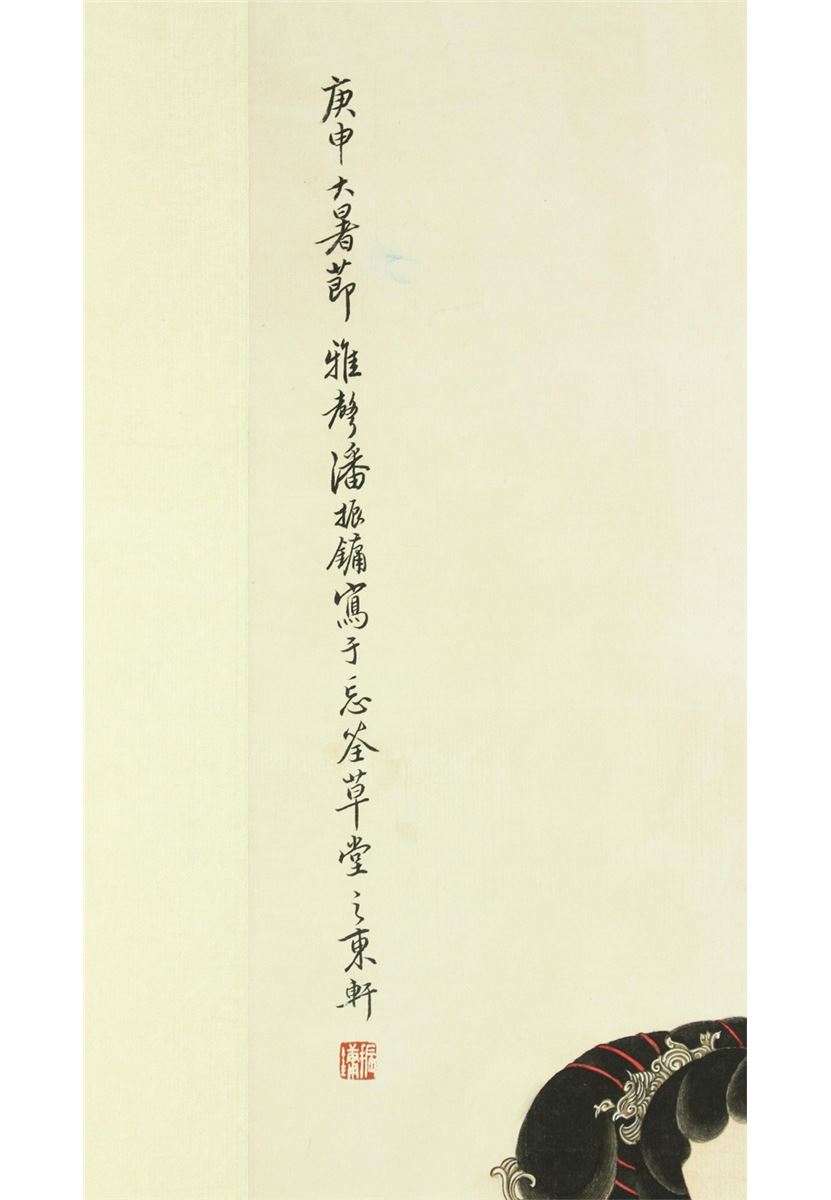 庚申大暑節雅聲潘振鏞寫于忘筌草堂之東軒
振鏞